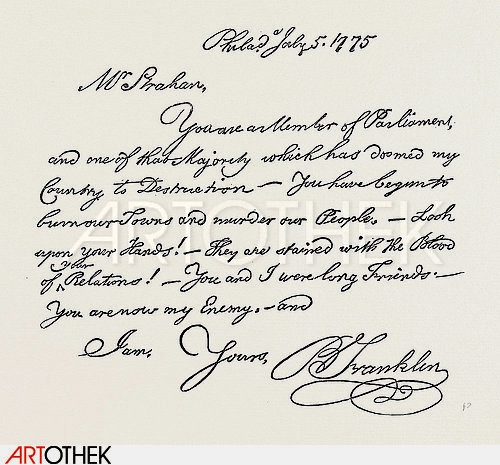 Philad.ᵃ July 5. 1775
Mr Strahan,
You are a Member of Parliament,
and one of that Majority which has doomed my
Country to Destruction — You have begun to
burn our Towns and murder our People. — Look
upon your Hands! — They are stained with the Blood
of your Relations! — You and I were long Friends. —
You are now my Enemy. — and
I am,
Yours,
B Franklin
ARTOTHEK
ARTOTHEK